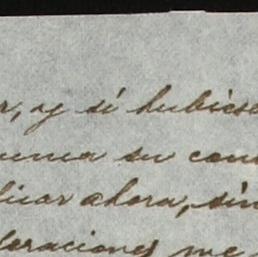 r, y si hubiese
su con
licar ahora, sin
laraciones me